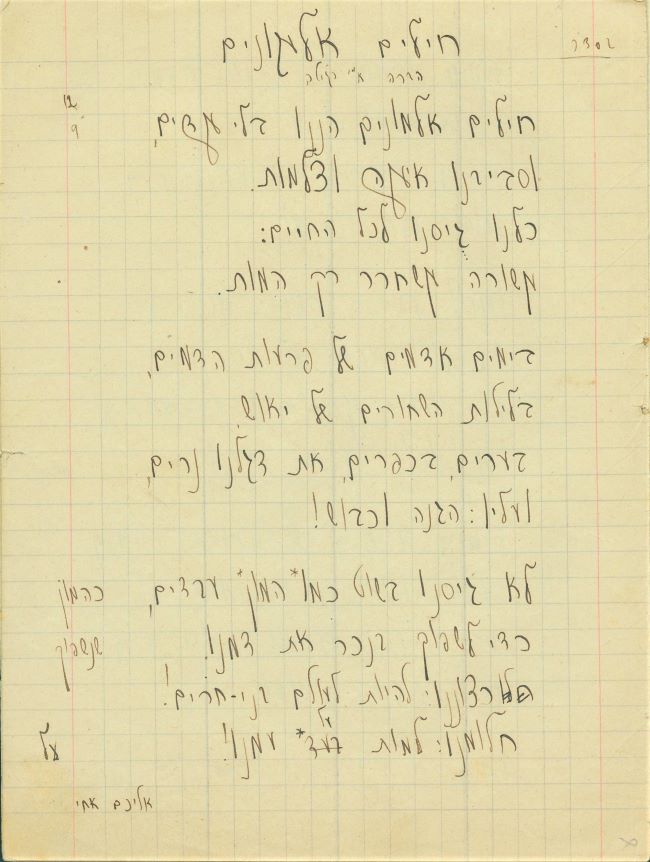 בסדר
חילים אלמונים
12
9
חילים אלמונים הננו בלי מדים,
וסבירנו אימה וצלמות.
כלנו גיסנו לכל החיים:
משורה משחרר רק המות.
בימים אדמים של פרעות הדמים,
בלילות השחורים של יאוש,
בערים, בכפרים, את דגלנו נרים,
ועליו: הגנה וכבוש!
לא גיסנו בשוט כמו* המון* עבדים, כהמון
כדי לשפוך בנכר את דמנו! שנשפוך
רצוננו: להיות לעולם בני-חרים!
חלומנו: למות בעד* עמנו! על
אליכם אחי